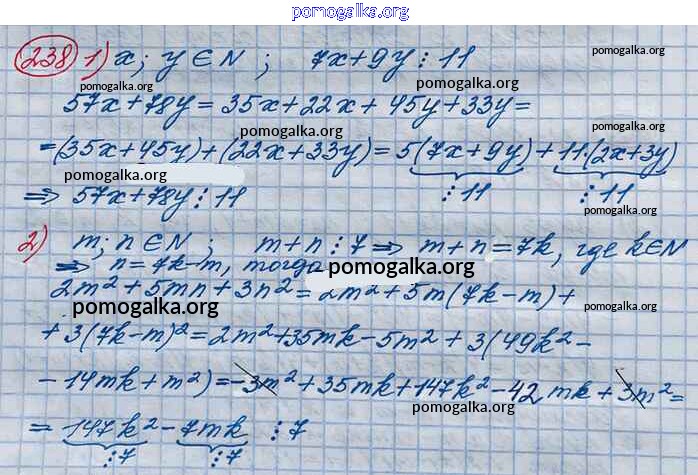 pomogalka.org
238 1) x; y ∈ N ; 7x+9y ⋮ 11 pomogalka.org
pomogalka.org pomogalka.org
57x+78y = 35x+22x+45y+33y =
pomogalka.org
= (35x+45y)+(22x+33y) = 5(7x+9y) + 11·(2x+3y)
pomogalka.org ⋮ 11 ⋮ 11
⇒ 57x+78y ⋮ 11
pomogalka.org
2) m; n ∈ N ; m+n ⋮ 7 ⇒ m+n = 7k, где k∈N
⇒ n = 7k-m, тогда pomogalka.org
2m²+5mn+3n² = 2m²+5m(7k-m)+
pomogalka.org pomogalka.org
+ 3(7k-m)² = 2m²+35mk-5m² + 3(49k²-
pomogalka.org
- 14mk+m²) = -3m²+35mk+147k²-42mk+3m² =
pomogalka.org
= 147k² - 7mk ⋮ 7
⋮ 7 ⋮ 7
pomogalka.org